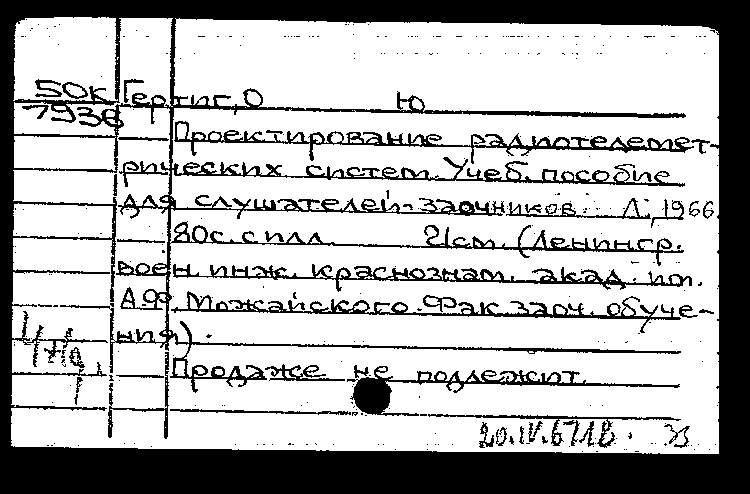 50к Гертиг, О Ю
7936
Проектирование радиотелемет-
рических систем. Учеб. пособие
для слушателей-заочников. Л., 1966.
80с. с илл. 21см. (Ленингр.
воен. инж. краснознам. акад. им.
А.Ф. Можайского. Фак. заоч. обуче-
ния).
Продаже не подлежит.
20.IV.67